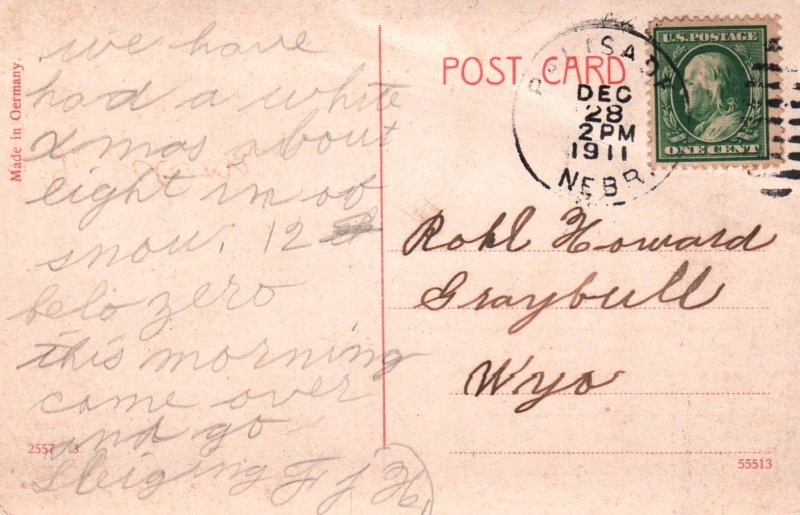 we have
had a white
Xmas about
eight in of
snow. 12
belo zero
this morning
come over
and go
Sleiging F J H
Made in Germany
2557 3.
POST CARD
PALISADE
DEC
28
2 PM
1911
NEBR.
U.S. POSTAGE
ONE CENT
Rohl Howard
Graybull
Wyo
55513